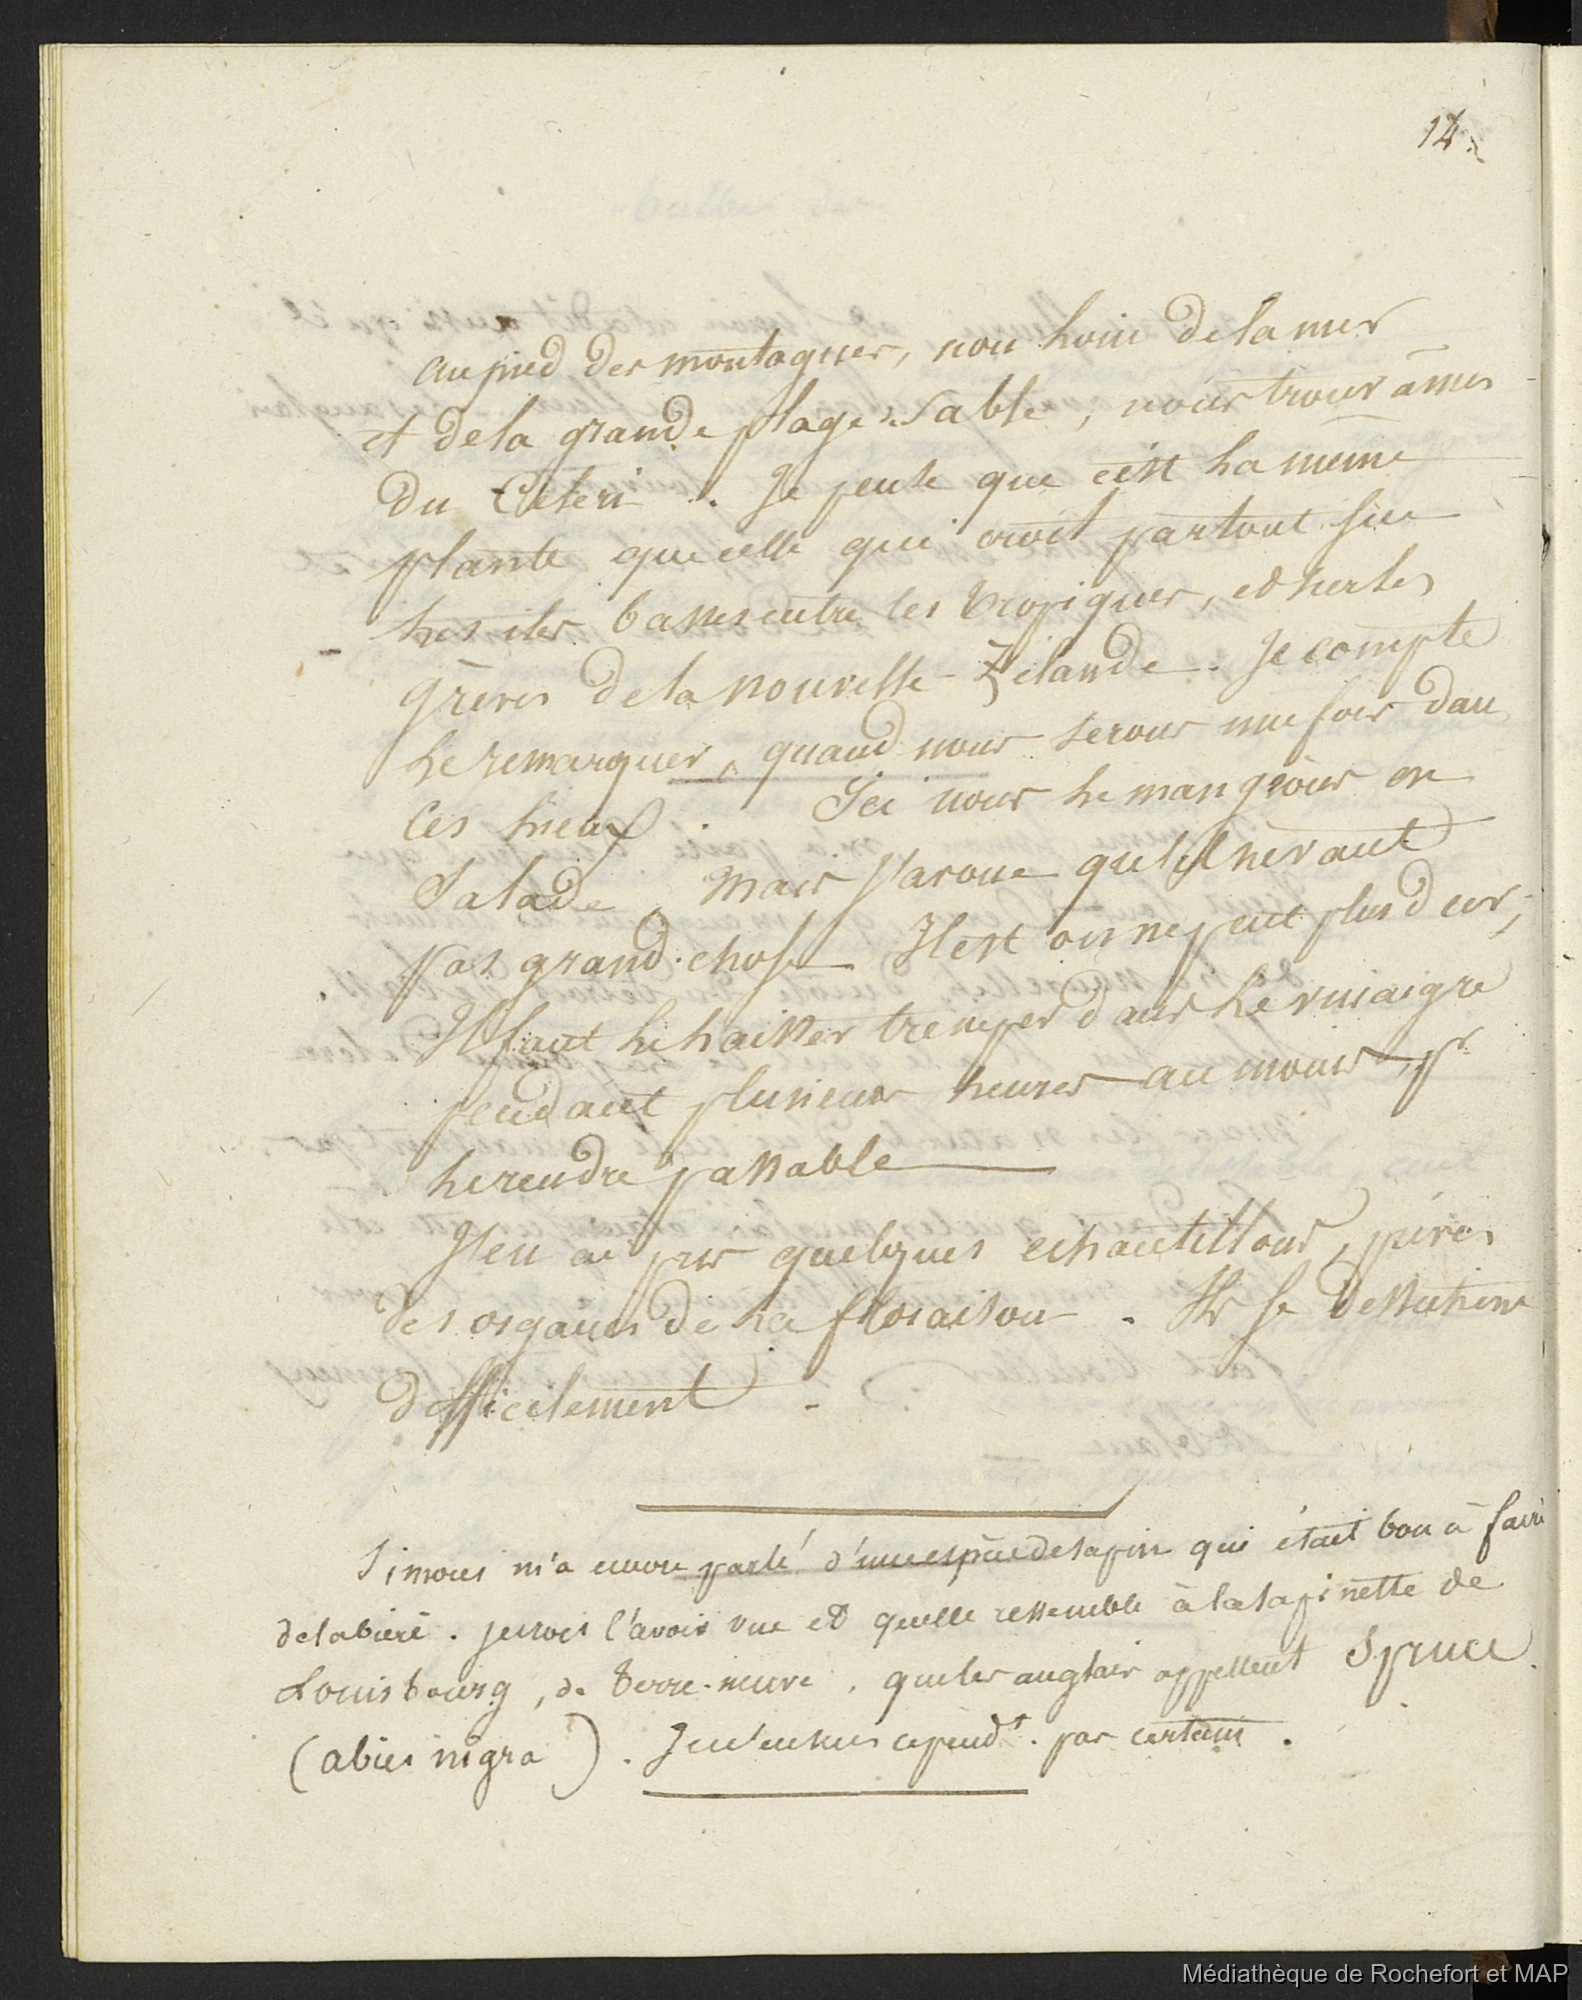 14.
au pied des montagnes, non loin de la mer
et de la grande plage de sable, nous trouvâmes
du Céleri. Je pense que c'est la même
plante que celle qui croît partout sur
les iles basses entre les tropiques, et sur les
grèves de la nouvelle-Zélande. Je compte
le remarquer, quand nous serons une fois dans
ces lieux. Ici nous le mangions en
salade, mais j'avoue qu'il ne vaut
pas grand chose. Il est on ne peut plus dur;
Il faut le laisser tremper dans le vinaigre
pendant plusieurs heures au moins, pr
le rendre passable
J'en ai pris quelques echantillons,
des organes de la floraison. Ils se dessechent
difficilement.
Simons m'a encore parlé d'une espèce de sapin qui était bon à faire
de la biere. je crois l'avoir vue et qu'elle ressemble à la sapinette de
Louisbourg, de terre-neuve, que les anglais appellent Spruce
(abies nigra). Je n'en suis cepend.t pas certain.
Médiathèque de Rochefort et MAP